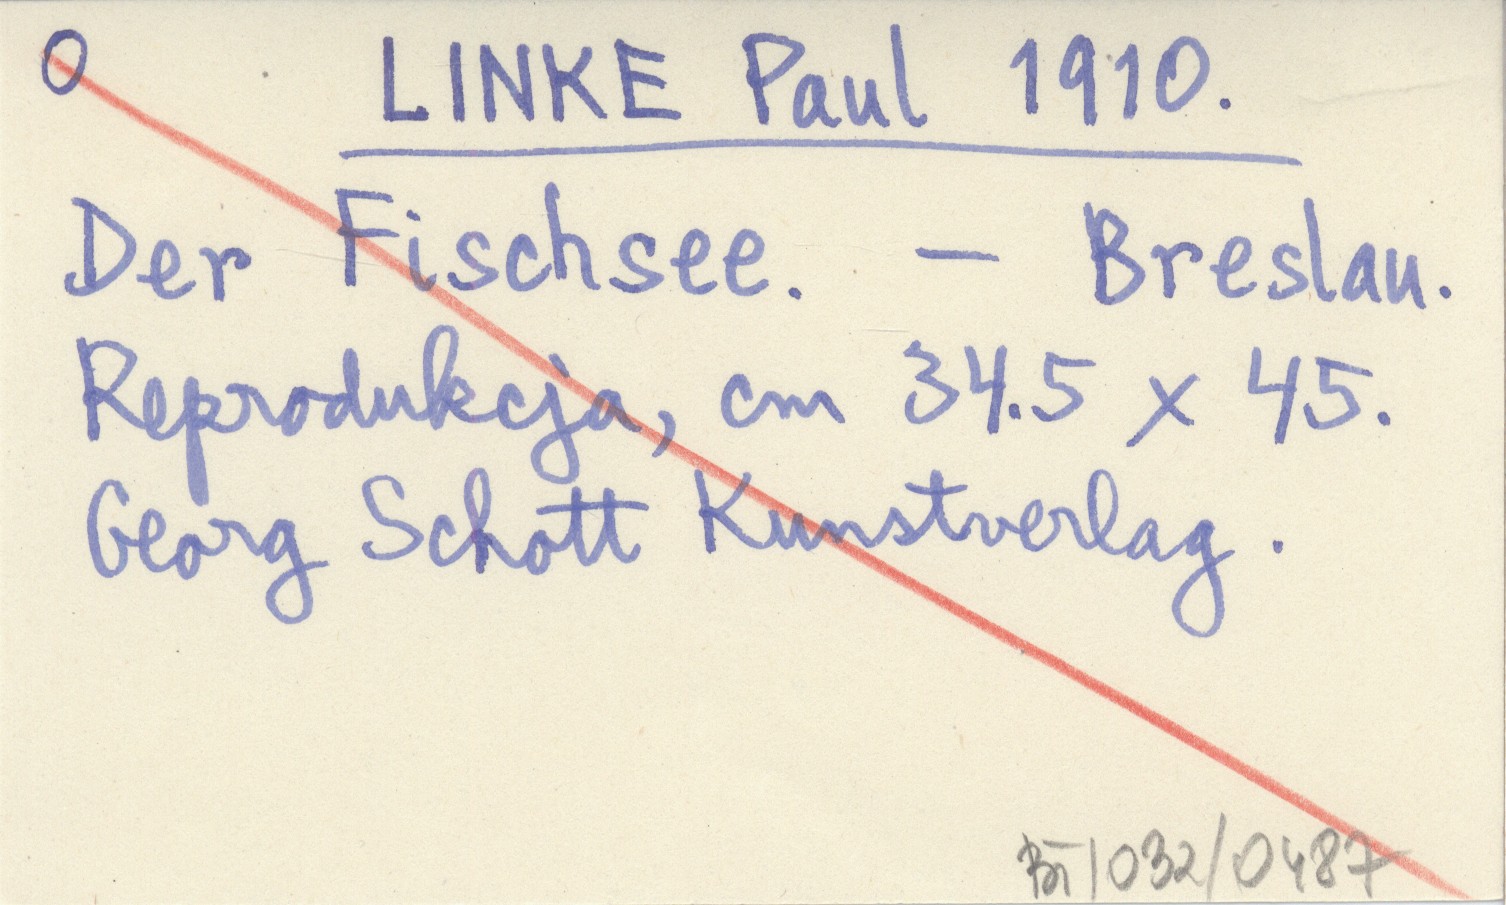 O LINKE Paul 1910.
Der Fischsee. — Breslau.
Reprodukcja, cm 34.5 x 45.
Georg Schott Kunstverlag.
032/0487